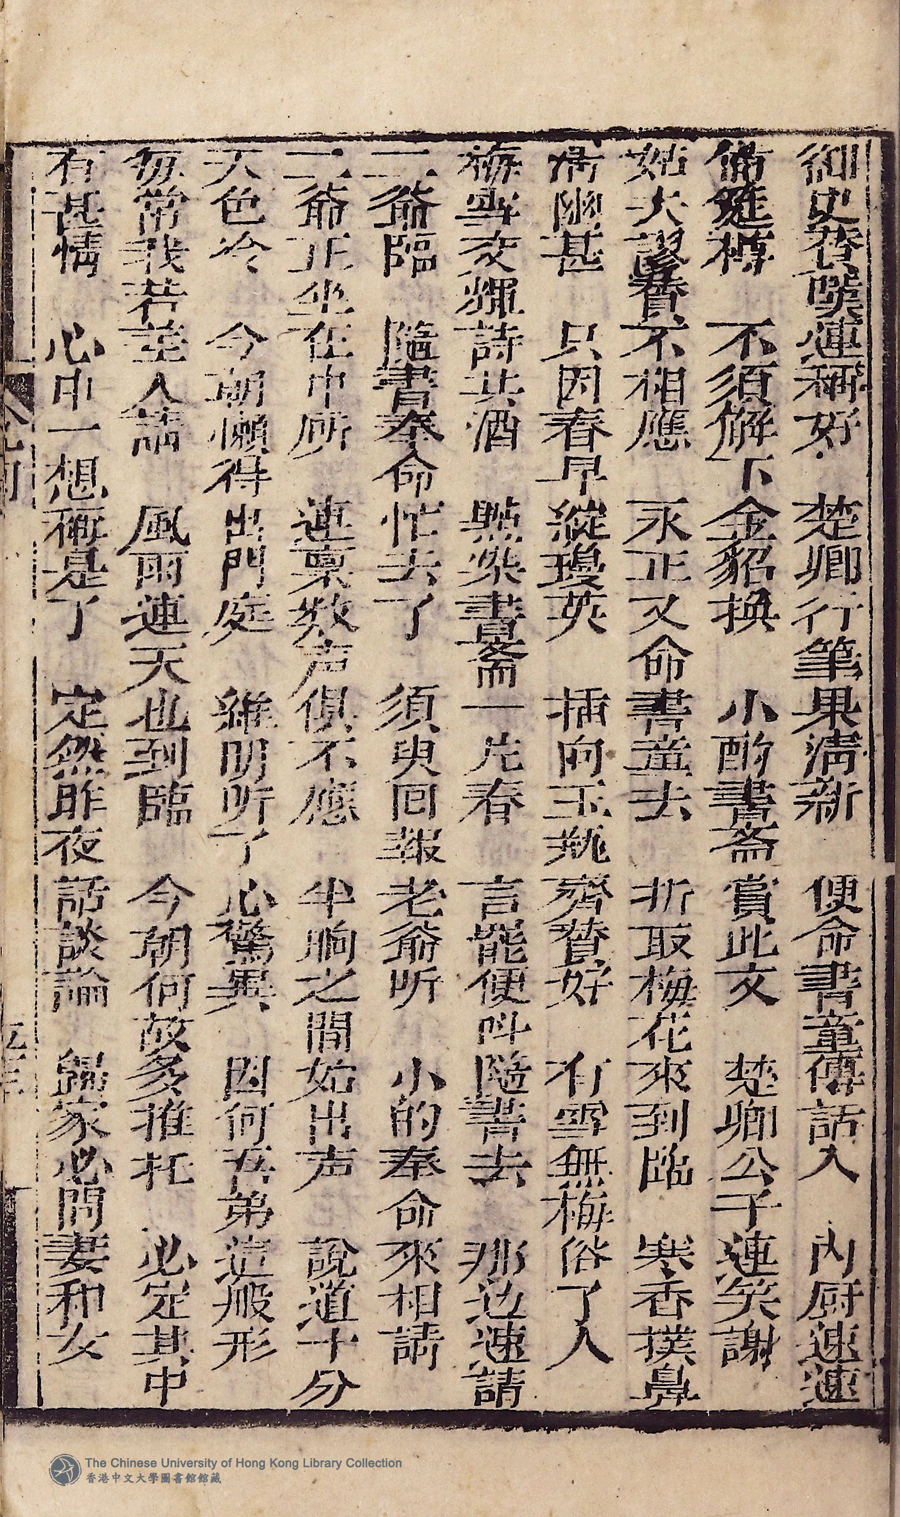 御史賛嘆連稱好 楚卿行筆果清新 便命書童傳話入 內厨速速
俻筵樽 不須解下金貂換 小酌書齋賞此文 楚卿公子連笑謝
姑夫謬賛不相應 永正又命書童去 折取梅花來到臨 寒香撲鼻
清幽甚 只因春早綻瓊英 插向玉瓶齊賛好 有雪無梅俗了人
梅雪交輝詩共酒 㸃染書齋一片春 言罷便呌隨書去 那边速請
二爺臨 隨書奉命忙去了 須臾囘報老爺听 小的奉命來相請
二爺正坐在中㕔 連禀数声俱不應 半晌之間始出声 說道十分
天色冷 今朝懶得出門庭 雖明听了心驚異 因何吾弟這般形
每常我若差人請 風雨連天也到臨 今朝何故多推托 必定其中
有甚情 心中一想 是了 定然昨夜話談論 歸家必問妻和女
The Chinese University of Hong Kong Library Collection
香港中文大學圖書館館藏